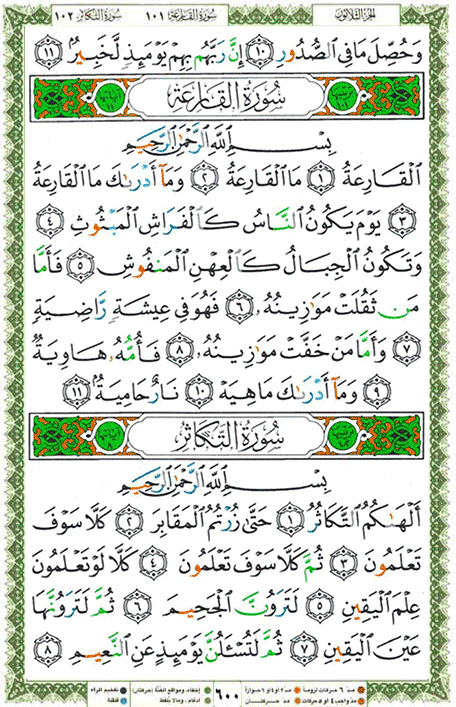 الجزء الثلاثون سورة القارعة ١٠١ سورة التكاثر ١٠٢
وَحُصِّلَ مَا فِي ٱلصُّدُورِ ١٠ إِنَّ رَبَّهُم بِهِمۡ يَوۡمَئِذٖ لَّخَبِيرُۢ ١١
سُورَةُ القَارِعَةِ
بِسۡمِ ٱللَّهِ ٱلرَّحۡمَٰنِ ٱلرَّحِيمِ
ٱلۡقَارِعَةُ ١ مَا ٱلۡقَارِعَةُ ٢ وَمَآ أَدۡرَىٰكَ مَا ٱلۡقَارِعَةُ
٣ يَوۡمَ يَكُونُ ٱلنَّاسُ كَٱلۡفَرَاشِ ٱلۡمَبۡثُوثِ ٤
وَتَكُونُ ٱلۡجِبَالُ كَٱلۡعِهۡنِ ٱلۡمَنفُوشِ ٥ فَأَمَّا
مَن ثَقُلَتۡ مَوَٰزِينُهُۥ ٦ فَهُوَ فِي عِيشَةٖ رَّاضِيَةٖ
٧ وَأَمَّا مَنۡ خَفَّتۡ مَوَٰزِينُهُۥ ٨ فَأُمُّهُۥ هَاوِيَةٞ
٩ وَمَآ أَدۡرَىٰكَ مَا هِيَهۡ ١٠ نَارٌ حَامِيَةُۢ ١١
سُورَةُ التَّكَاثُرِ
بِسۡمِ ٱللَّهِ ٱلرَّحۡمَٰنِ ٱلرَّحِيمِ
أَلۡهَىٰكُمُ ٱلتَّكَاثُرُ ١ حَتَّىٰ زُرۡتُمُ ٱلۡمَقَابِرَ ٢ كَلَّا سَوۡفَ
تَعۡلَمُونَ ٣ ثُمَّ كَلَّا سَوۡفَ تَعۡلَمُونَ ٤ كَلَّا لَوۡ تَعۡلَمُونَ
عِلۡمَ ٱلۡيَقِينِ ٥ لَتَرَوُنَّ ٱلۡجَحِيمَ ٦ ثُمَّ لَتَرَوُنَّهَا
عَيۡنَ ٱلۡيَقِينِ ٧ ثُمَّ لَتُسۡـَٔلُنَّ يَوۡمَئِذٍ عَنِ ٱلنَّعِيمِ ٨
مد ٦ حركات لزوماً مد ٢ او ٤ او ٦ جوازاً ٦٠٠ إخفاء، ومواقع الغنة (حركتان) تفخيم الراء
مد واجب ٤ او ٥ حركات مد حركتان إدغام، وما لا يلفظ قلقلة